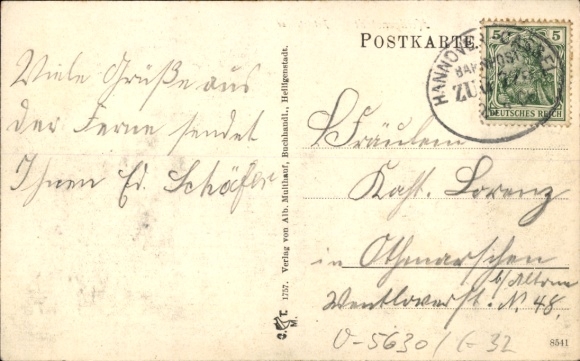 Viele Grüße aus
der Ferne sendet
Ihnen Ed. Schäfer
C. T. M. 1757. Verlag von Alb. Multhauf, Buchhandl., Heiligenstadt.
POSTKARTE
HANNOVER
BAHNPOST
ZUG
5 5
DEUTSCHES REICH
Fräulein
Kath. Lorenz
in Othmarschen
b/ Altona
N. 48.
V-5630/G-32
8541